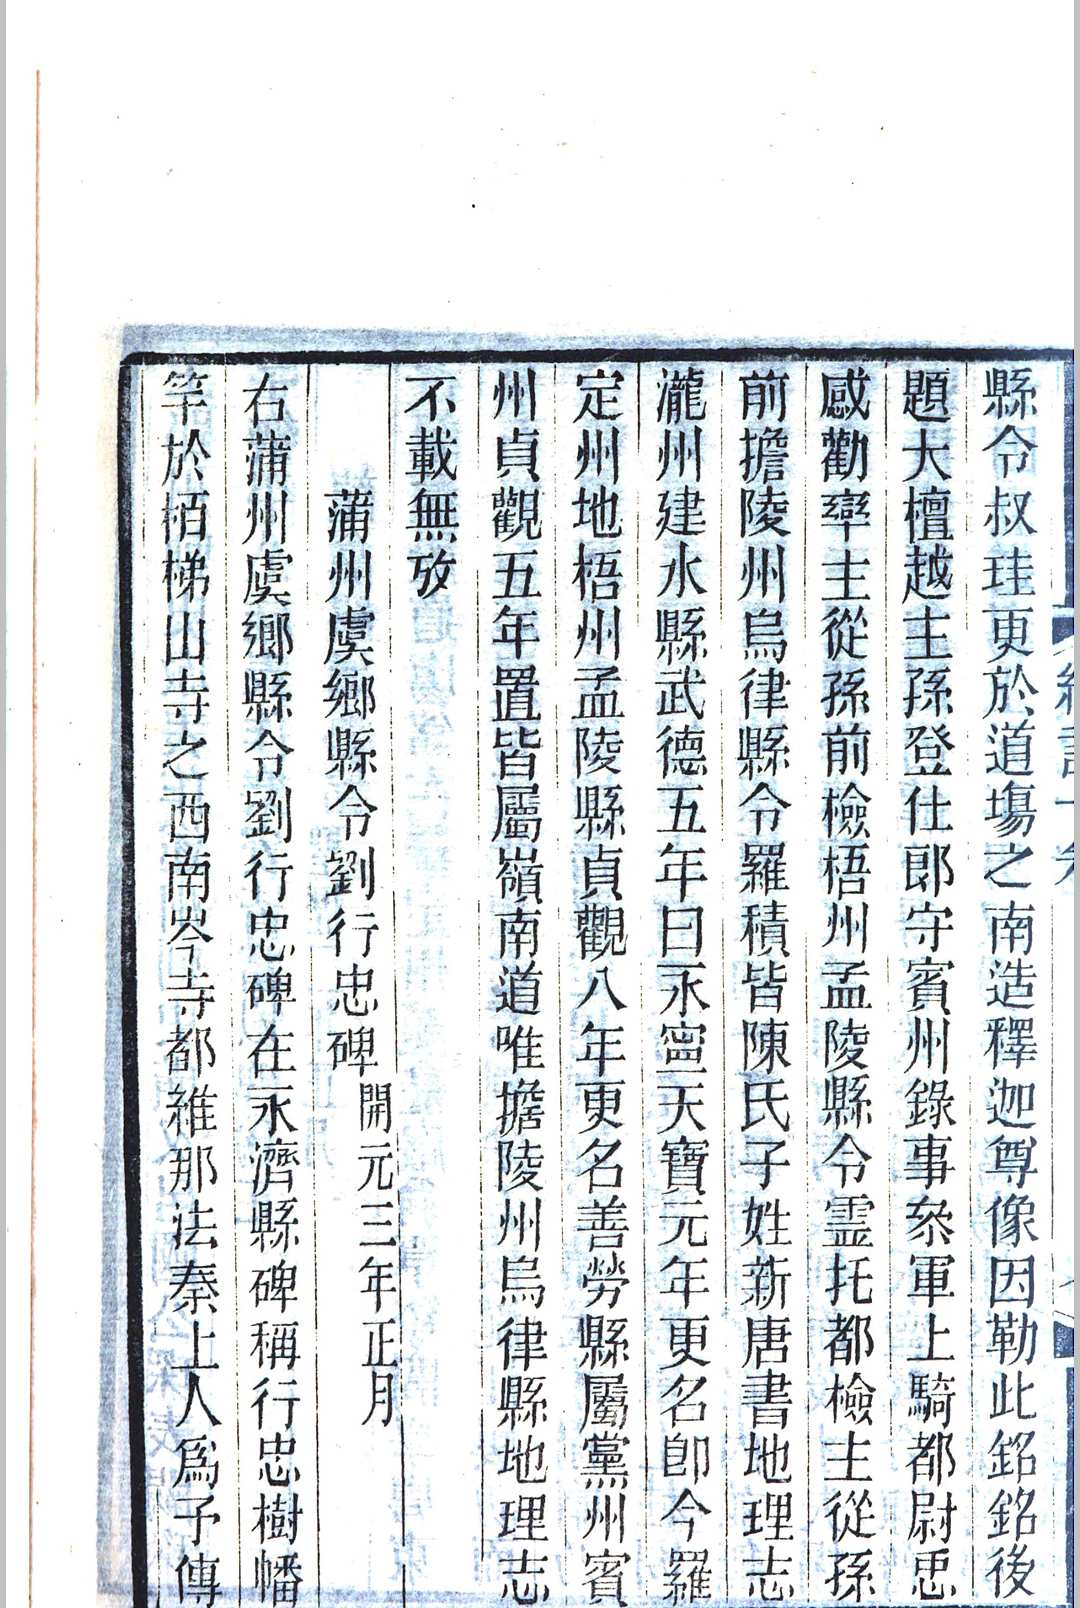 縣令叔珪更於道場之南造釋迦尊像因勒此銘銘後
題大檀越主孫登仕郎守賓州錄事叅軍上騎都尉㤙
感勸率主從孫前檢梧州孟陵縣令靈托都檢主從孫
前擔陵州烏律縣令羅積皆陳氏子姓新唐書地理志
瀧州建水縣武德五年曰永寧天寶元年更名卽今羅
定州地梧州孟陵縣貞觀八年更名善勞縣屬黨州賓
州貞觀五年置皆屬嶺南道唯擔陵州烏律縣地理志
不載無攷
蒲州虞鄉縣令劉行忠碑 開元三年正月
右蒲州虞鄉縣令劉行忠碑在永濟縣碑稱行忠樹幡
竿於栢梯山寺之西南岑寺都維那法秦上人爲予傳